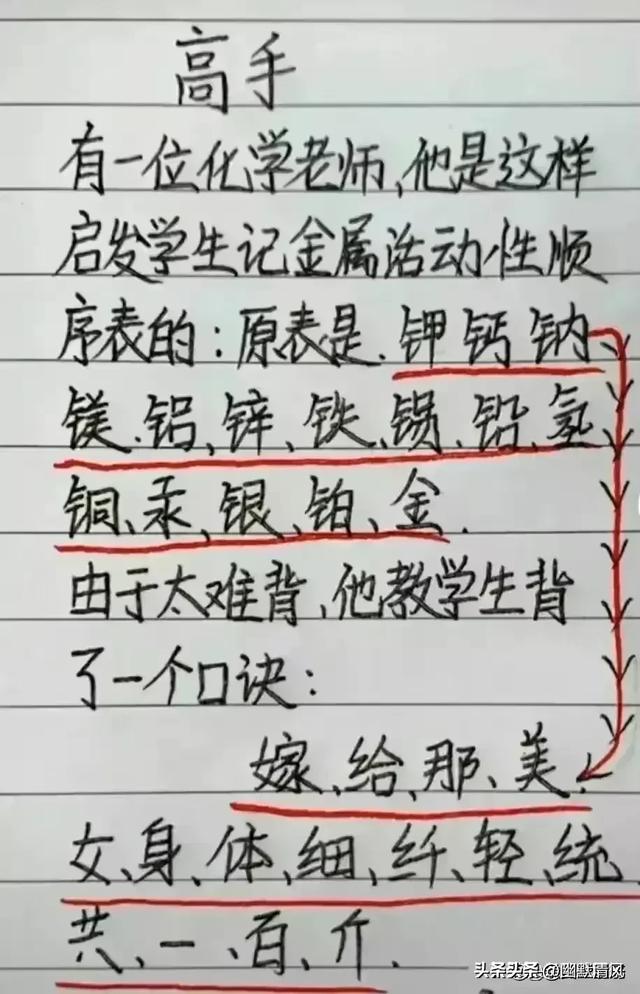 高手
有一位化学老师,他是这样
启发学生记金属活动性顺
序表的:原表是.钾钙钠、
镁.铝、锌、铁、锡、铅、氢
铜、汞、银、铂、金.
由于太难背,他教学生背
了一个口诀:
嫁、给、那、美.
女、身、体、细、纤、轻、统
共、一、百、斤.
头条头条 @幽默清风